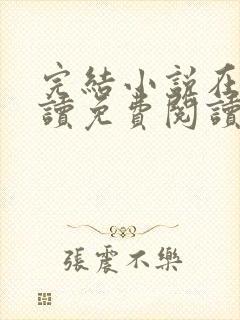 完結小說在
讀免費閱讀
張震不樂